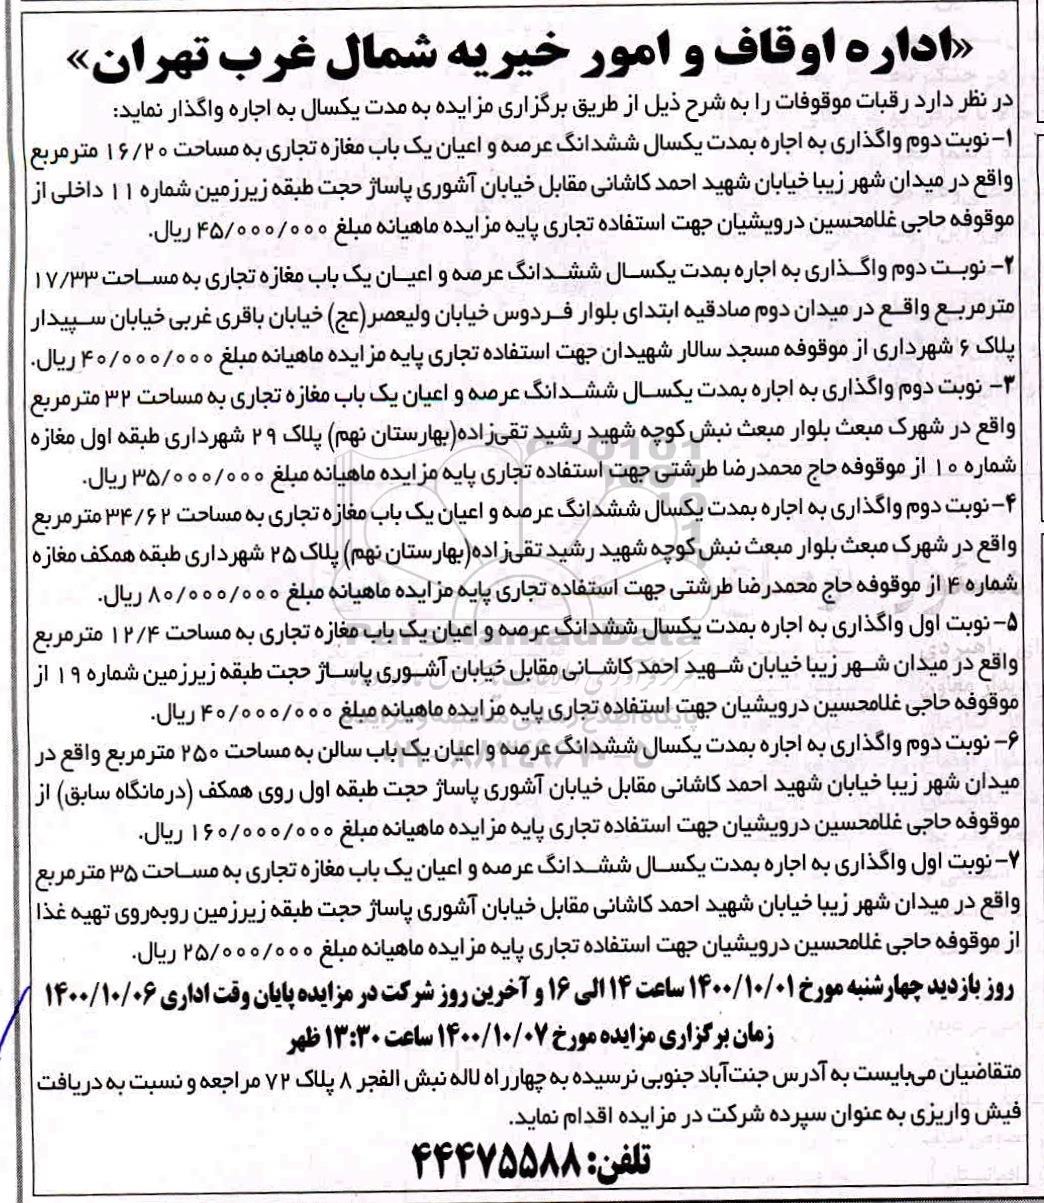 «اداره اوقاف و امور خیریه شمال غرب تهران»
در نظر دارد رقبات موقوفات را به شرح ذیل از طریق برگزاری مزایده به مدت یکسال به اجاره واگذار نماید:
۱- نوبت دوم واگذاری به اجاره بمدت یکسال ششدانگ عرصه و اعیان یک باب مغازه تجاری به مساحت ۱۶/۲۰ مترمربع
واقع در میدان شهر زیبا خیابان شهید احمد کاشانی مقابل خیابان آشوری پاساژ حجت طبقه زیرزمین شماره ۱۱ داخلی از
موقوفه حاجی غلامحسین درویشیان جهت استفاده تجاری پایه مزایده ماهیانه مبلغ ۴۵/۰۰۰/۰۰۰ ریال.
۲- نوبت دوم واگذاری به اجاره بمدت یکسال ششدانگ عرصه و اعیان یک باب مغازه تجاری به مساحت ۱۷/۳۳
مترمربع واقع در میدان دوم صادقیه ابتدای بلوار فردوس خیابان ولیعصر(عج) خیابان باقری غربی خیابان سپیدار
پلاک ۶ شهرداری از موقوفه مسجد سالار شهیدان جهت استفاده تجاری پایه مزایده ماهیانه مبلغ ۴۰/۰۰۰/۰۰۰ ریال.
۳- نوبت دوم واگذاری به اجاره بمدت یکسال ششدانگ عرصه و اعیان یک باب مغازه تجاری به مساحت ۳۲ مترمربع
واقع در شهرک مبعث بلوار مبعث نبش کوچه شهید رشید تقی‌زاده(بهارستان نهم) پلاک ۲۹ شهرداری طبقه اول مغازه
شماره ۱۰ از موقوفه حاج محمدرضا طرشتی جهت استفاده تجاری پایه مزایده ماهیانه مبلغ ۳۵/۰۰۰/۰۰۰ ریال.
۴- نوبت دوم واگذاری به اجاره بمدت یکسال ششدانگ عرصه و اعیان یک باب مغازه تجاری به مساحت ۳۴/۶۲ مترمربع
واقع در شهرک مبعث بلوار مبعث نبش کوچه شهید رشید تقی‌زاده(بهارستان نهم) پلاک ۲۵ شهرداری طبقه همکف مغازه
شماره ۴ از موقوفه حاج محمدرضا طرشتی جهت استفاده تجاری پایه مزایده ماهیانه مبلغ ۸۰/۰۰۰/۰۰۰ ریال.
۵- نوبت اول واگذاری به اجاره بمدت یکسال ششدانگ عرصه و اعیان یک باب مغازه تجاری به مساحت ۱۲/۴ مترمربع
واقع در میدان شهر زیبا خیابان شهید احمد کاشانی مقابل خیابان آشوری پاساژ حجت طبقه زیرزمین شماره ۱۹ از
موقوفه حاجی غلامحسین درویشیان جهت استفاده تجاری پایه مزایده ماهیانه مبلغ ۴۰/۰۰۰/۰۰۰ ریال.
۶- نوبت دوم واگذاری به اجاره بمدت یکسال ششدانگ عرصه و اعیان یک باب سالن به مساحت ۲۵۰ مترمربع واقع در
میدان شهر زیبا خیابان شهید احمد کاشانی مقابل خیابان آشوری پاساژ حجت طبقه اول روی همکف (درمانگاه سابق) از
موقوفه حاجی غلامحسین درویشیان جهت استفاده تجاری پایه مزایده ماهیانه مبلغ ۱۶۰/۰۰۰/۰۰۰ ریال.
۷- نوبت اول واگذاری به اجاره بمدت یکسال ششدانگ عرصه و اعیان یک باب مغازه تجاری به مساحت ۳۵ مترمربع
واقع در میدان شهر زیبا خیابان شهید احمد کاشانی مقابل خیابان آشوری پاساژ حجت طبقه زیرزمین روبه‌روی تهیه غذا
از موقوفه حاجی غلامحسین درویشیان جهت استفاده تجاری پایه مزایده ماهیانه مبلغ ۲۵/۰۰۰/۰۰۰ ریال.
روز بازدید چهارشنبه مورخ ۱۴۰۰/۱۰/۰۱ ساعت ۱۴ الی ۱۶ و آخرین روز شرکت در مزایده پایان وقت اداری ۱۴۰۰/۱۰/۰۶
زمان برگزاری مزایده مورخ ۱۴۰۰/۱۰/۰۷ ساعت ۱۳:۳۰ ظهر
متقاضیان می‌بایست به آدرس جنت‌آباد جنوبی نرسیده به چهارراه لاله نبش الفجر ۸ پلاک ۷۲ مراجعه و نسبت به دریافت
فیش واریزی به عنوان سپرده شرکت در مزایده اقدام نماید.
تلفن: ۴۴۴۷۵۵۸۸